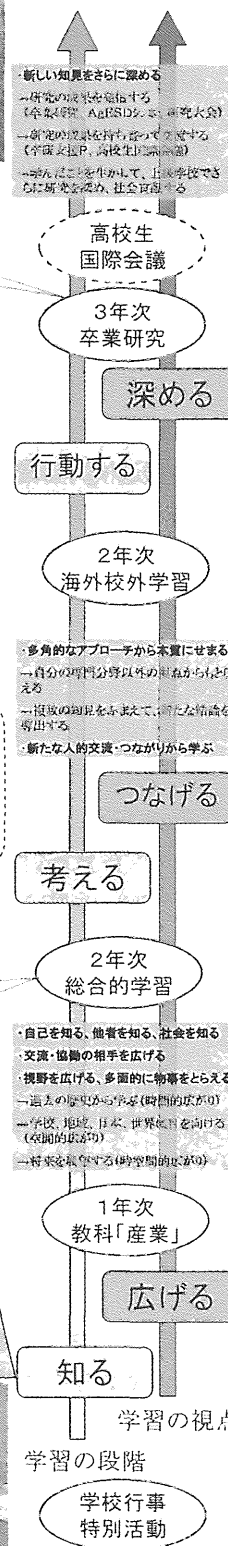 ・新しい知見をさらに深める
→研究の成果を発信する
(卒業研究、AgESDシンポ、研究大会)
→研究の成果を持ち寄って
(卒研支援P、高校生国際会議)
→学んだことを生かして、上級学校でさ
らに研究を深め、社会貢献する
高校生
国際会議
3年次
卒業研究
深める
行動する
2年次
海外校外学習
・多角的なアプローチから本質にせまる
→自分の専門分野以外の視点からもとら
える
→複数の知見をふまえて、新たな結論を
導出する
・新たな人的交流・つながりから学ぶ
つなげる
考える
2年次
総合的学習
・自己を知る、他者を知る、社会を知る
・交流・協働の相手を広げる
・視野を広げる、多面的に物事をとらえる
→過去の歴史から学ぶ(時間的広がり)
→学校、地域、日本、世界に目を向ける
(空間的広がり)
→将来を展望する(時空間的広がり)
1年次
教科「産業」
広げる
知る
学習の視点
学習の段階
学校行事
特別活動